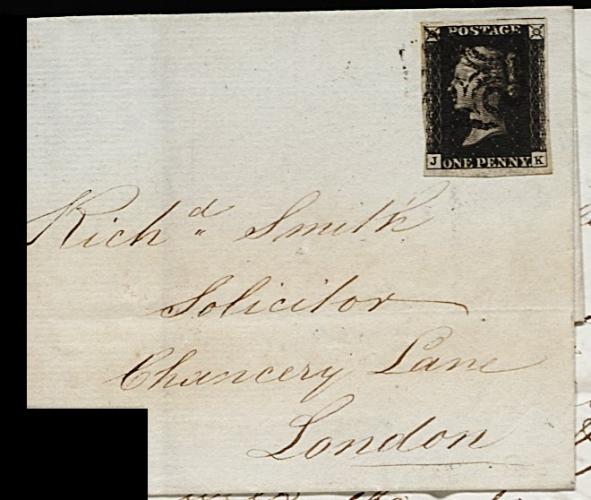 POSTAGE
J ONE PENNY. K
Rich.d Smith
Solicitor
Chancery Lane
London